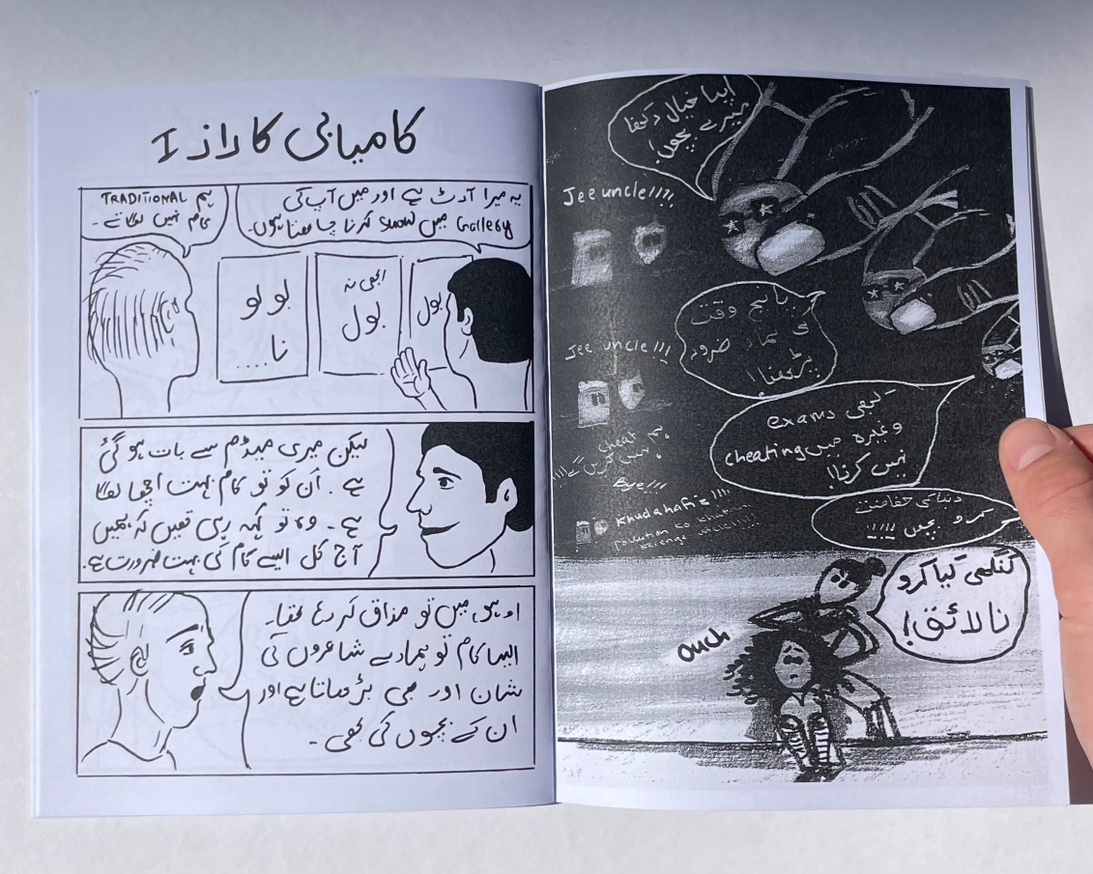 کامیابی کا راز I
یہ میرا آرٹ ہے اور میں آپ کی
Gallery میں show کرنا چاہتا ہوں۔
ہم TRADITIONAL
کام نہیں لگاتے۔
بول
ابھی نہ
بول
بولو
نا
.....
لیکن میری میڈم سے بات ہو گئی
ہے۔ اُن کو تو کام بہت اچھا لگا
ہے۔ وہ تو کہہ رہی تھیں کہ ہمیں
آج کل ایسے کام کی بہت ضرورت ہے۔
اوہو، میں تو مذاق کر رہا تھا۔
ایسا کام تو ہمارے شاعروں کی
شان اور بھی بڑھاتا ہے اور
ان کے بچوں کی بھی۔
اپنا خیال رکھنا
میرے بچوں!
Jee uncle!!!!
پانچ وقت
کی نماز ضرور
پڑھنا!
Jee uncle!!!
کبھی exams
وغیرہ میں cheating
نہیں کرنا!
ہم cheat
نہیں کریں گے!!!!
Bye!!!
دنیا کی حفاظت
کرو بچوں !!!!
Khudahafiz!!!!
pollution ko khatam
karenge uncle!!!!
کنگھی کیا کرو
نالائق!
ouch